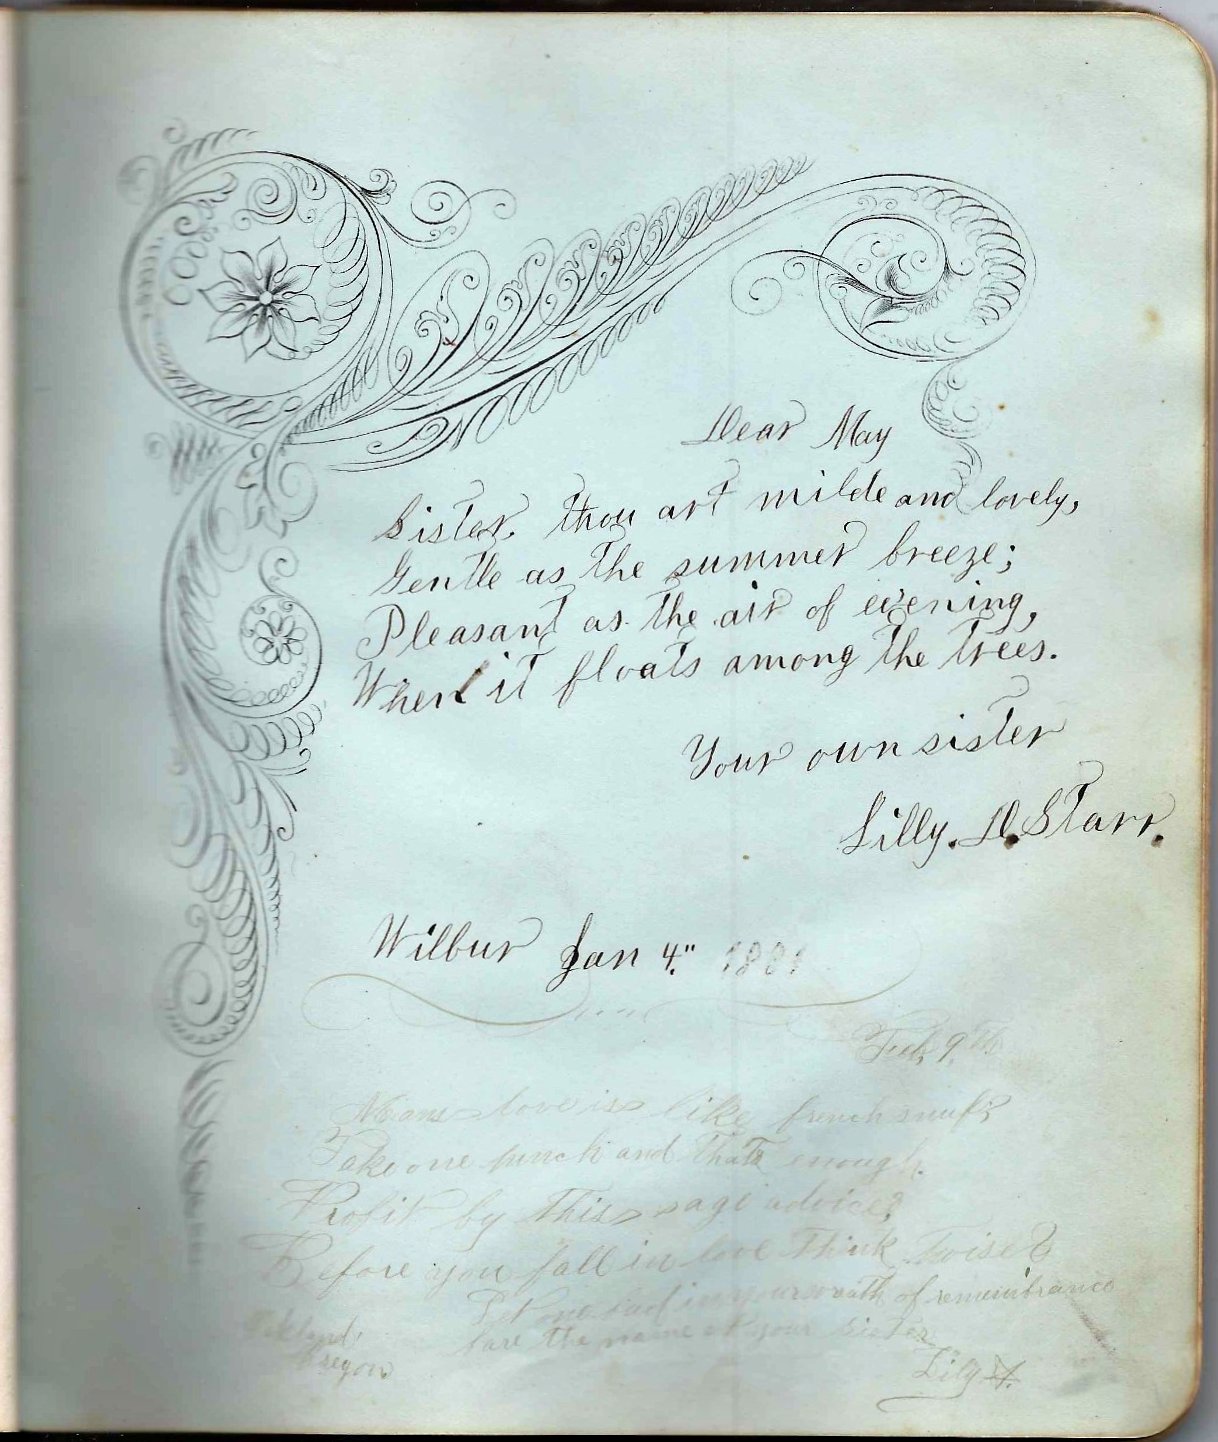 Dear May
Sister, thou art milde and lovely,
Gentle as the summer breeze;
Pleasant as the air of evening,
When it floats among the trees.
Your own sister
Lilly. D. Starr.
Wilbur Jan 4." 1881
Feb, 9, th
Mans love is like french snuff
Take one pinch and thats enough.
Profit by this sage advice,
Before you fall in love think twise
Let one bud in your wreath of remembrance
bare the name of your sister
Oakland,
Oregon
Lily